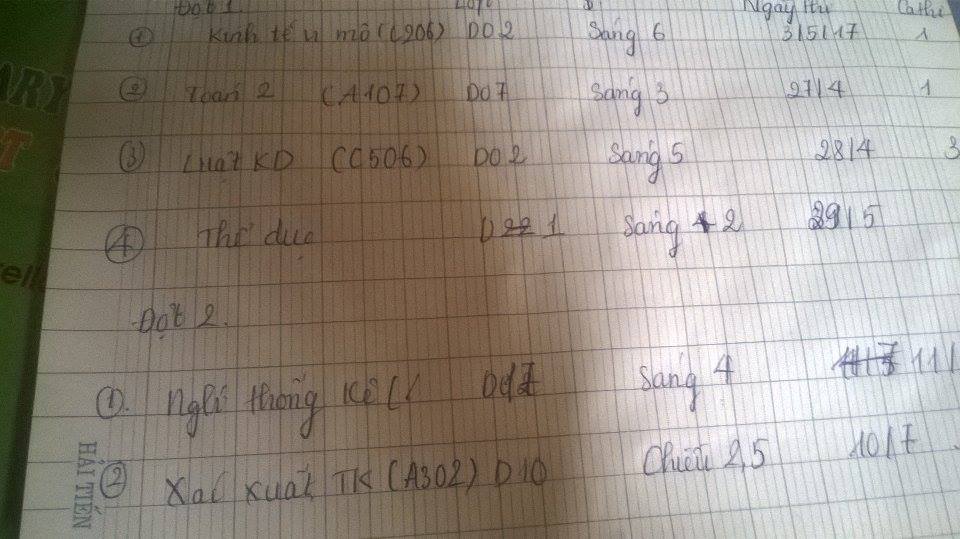 Đợt 1 Lớp Ngày thi Ca thi
① Kinh tế vĩ mô (C206) D02 Sáng 6 3/5/17 1
② Toán 2 (A107) D07 Sáng 3 27/4 1
③ Luật KD (C506) D02 Sáng 5 28/4 3
④ Thể dục D 1 Sáng 2 29/5
Đợt 2.
①. Nglí thống kê ( Sáng 4 11/
② Xác xuất TK (A302) D10 Chiều 2,5 10/7
HẢI TIẾN
ARY
T